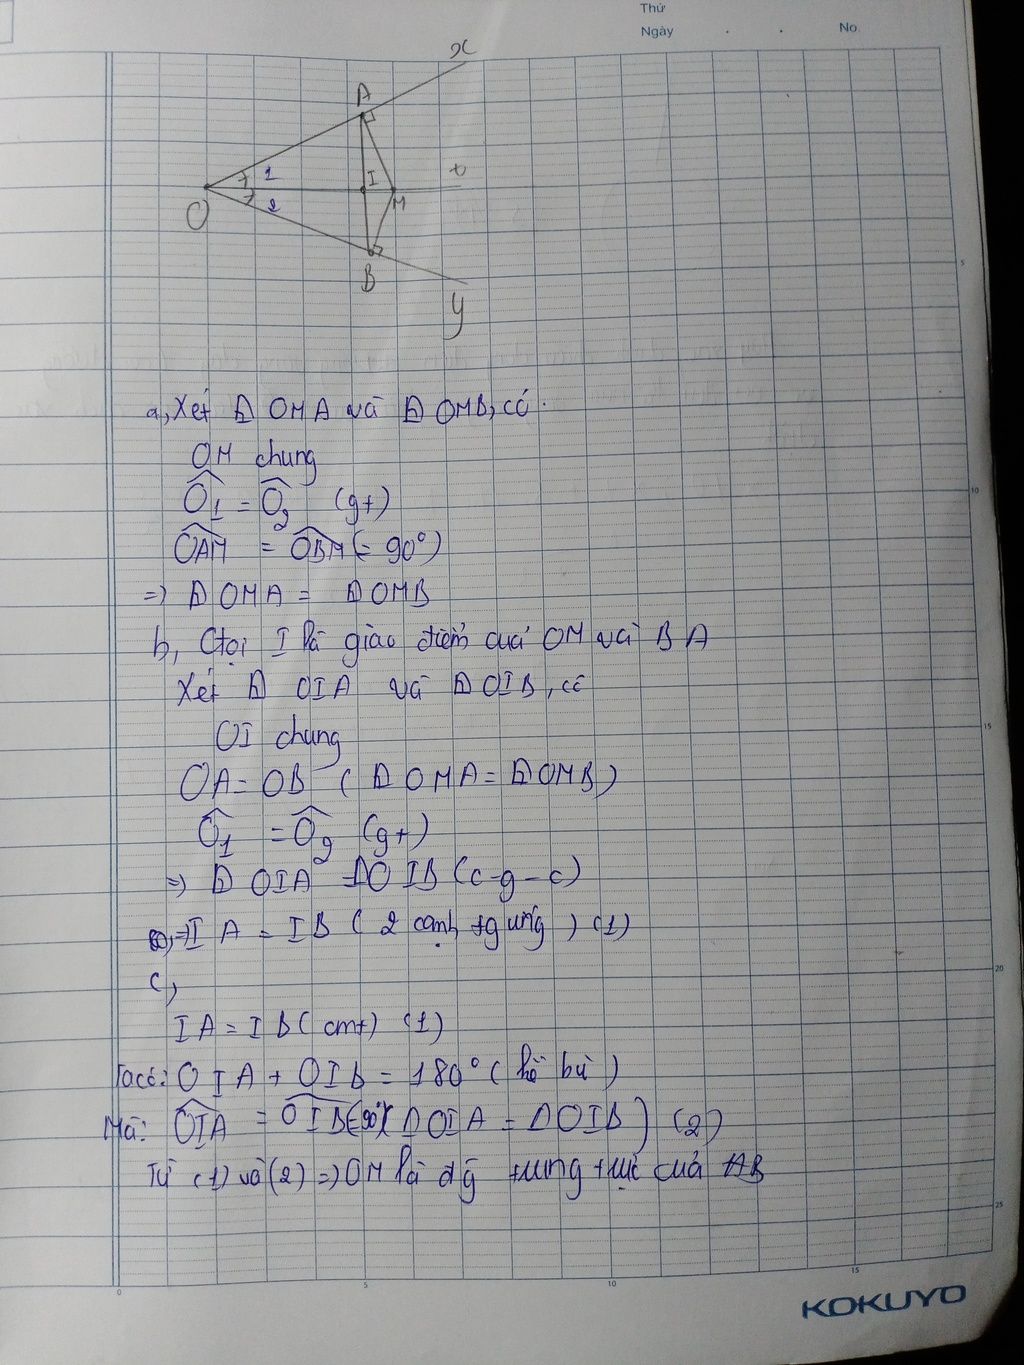 Thứ
Ngày . . No.
x
A
1
I
t
O
2
M
B
y
a, Xét Δ OMA và Δ OMB, có.
OM chung
Ô1 = Ô2 (gt)
OAM = OBM (= 90°)
=> Δ OMA = Δ OMB
b, Gọi I là giao điểm của OM và BA
Xét Δ OIA và Δ OIB, có
OI chung
OA = OB (Δ OMA = Δ OMB)
Ô1 = Ô2 (gt)
=> Δ OIA = ΔOIB (c-g-c)
=> IA = IB (2 cạnh tg ứng) (1)
c,
IA = IB (cmt) (1)
Ta có: OIA + OIB = 180° (kề bù)
Mà: OIA = OIB (=90°)(ΔOIA = ΔOIB) (2)
Từ (1) và (2) => OM là đg trung trực của AB
5
10
15
20
25
0
5
10
15
KOKUYO